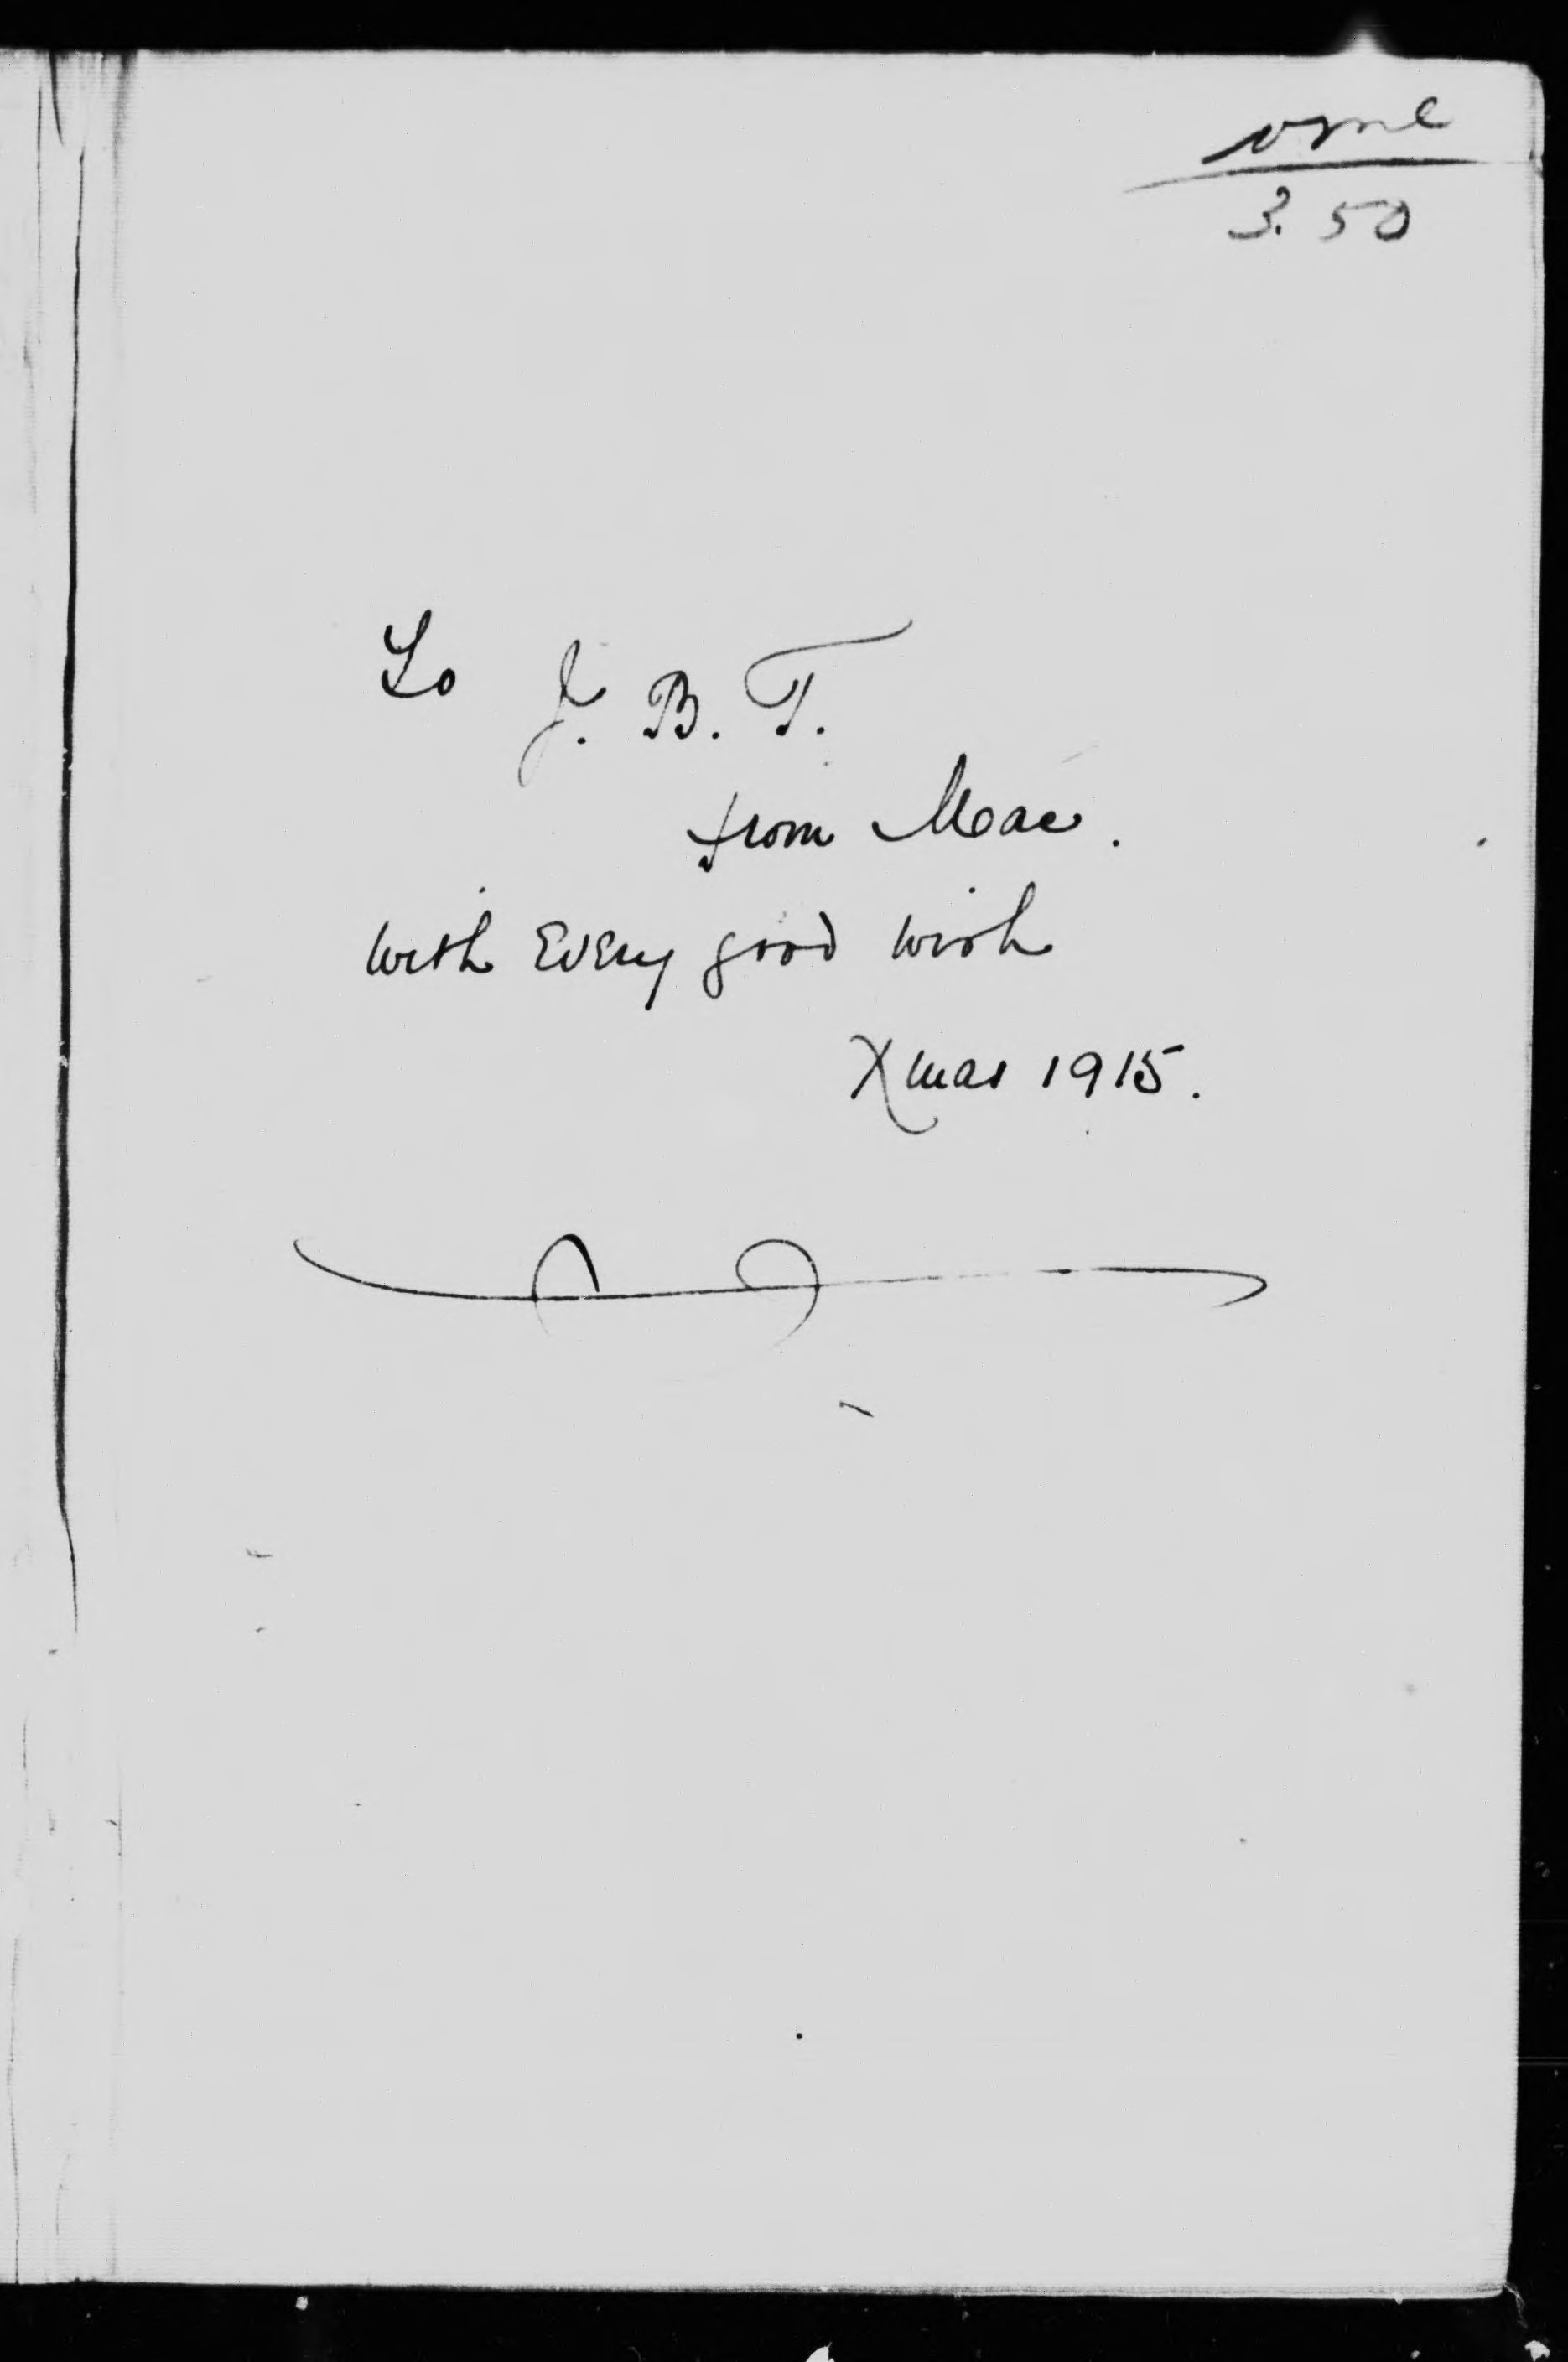 3.50
To J. B. T.
from Mac.
with Every good wish
Xmas 1915.